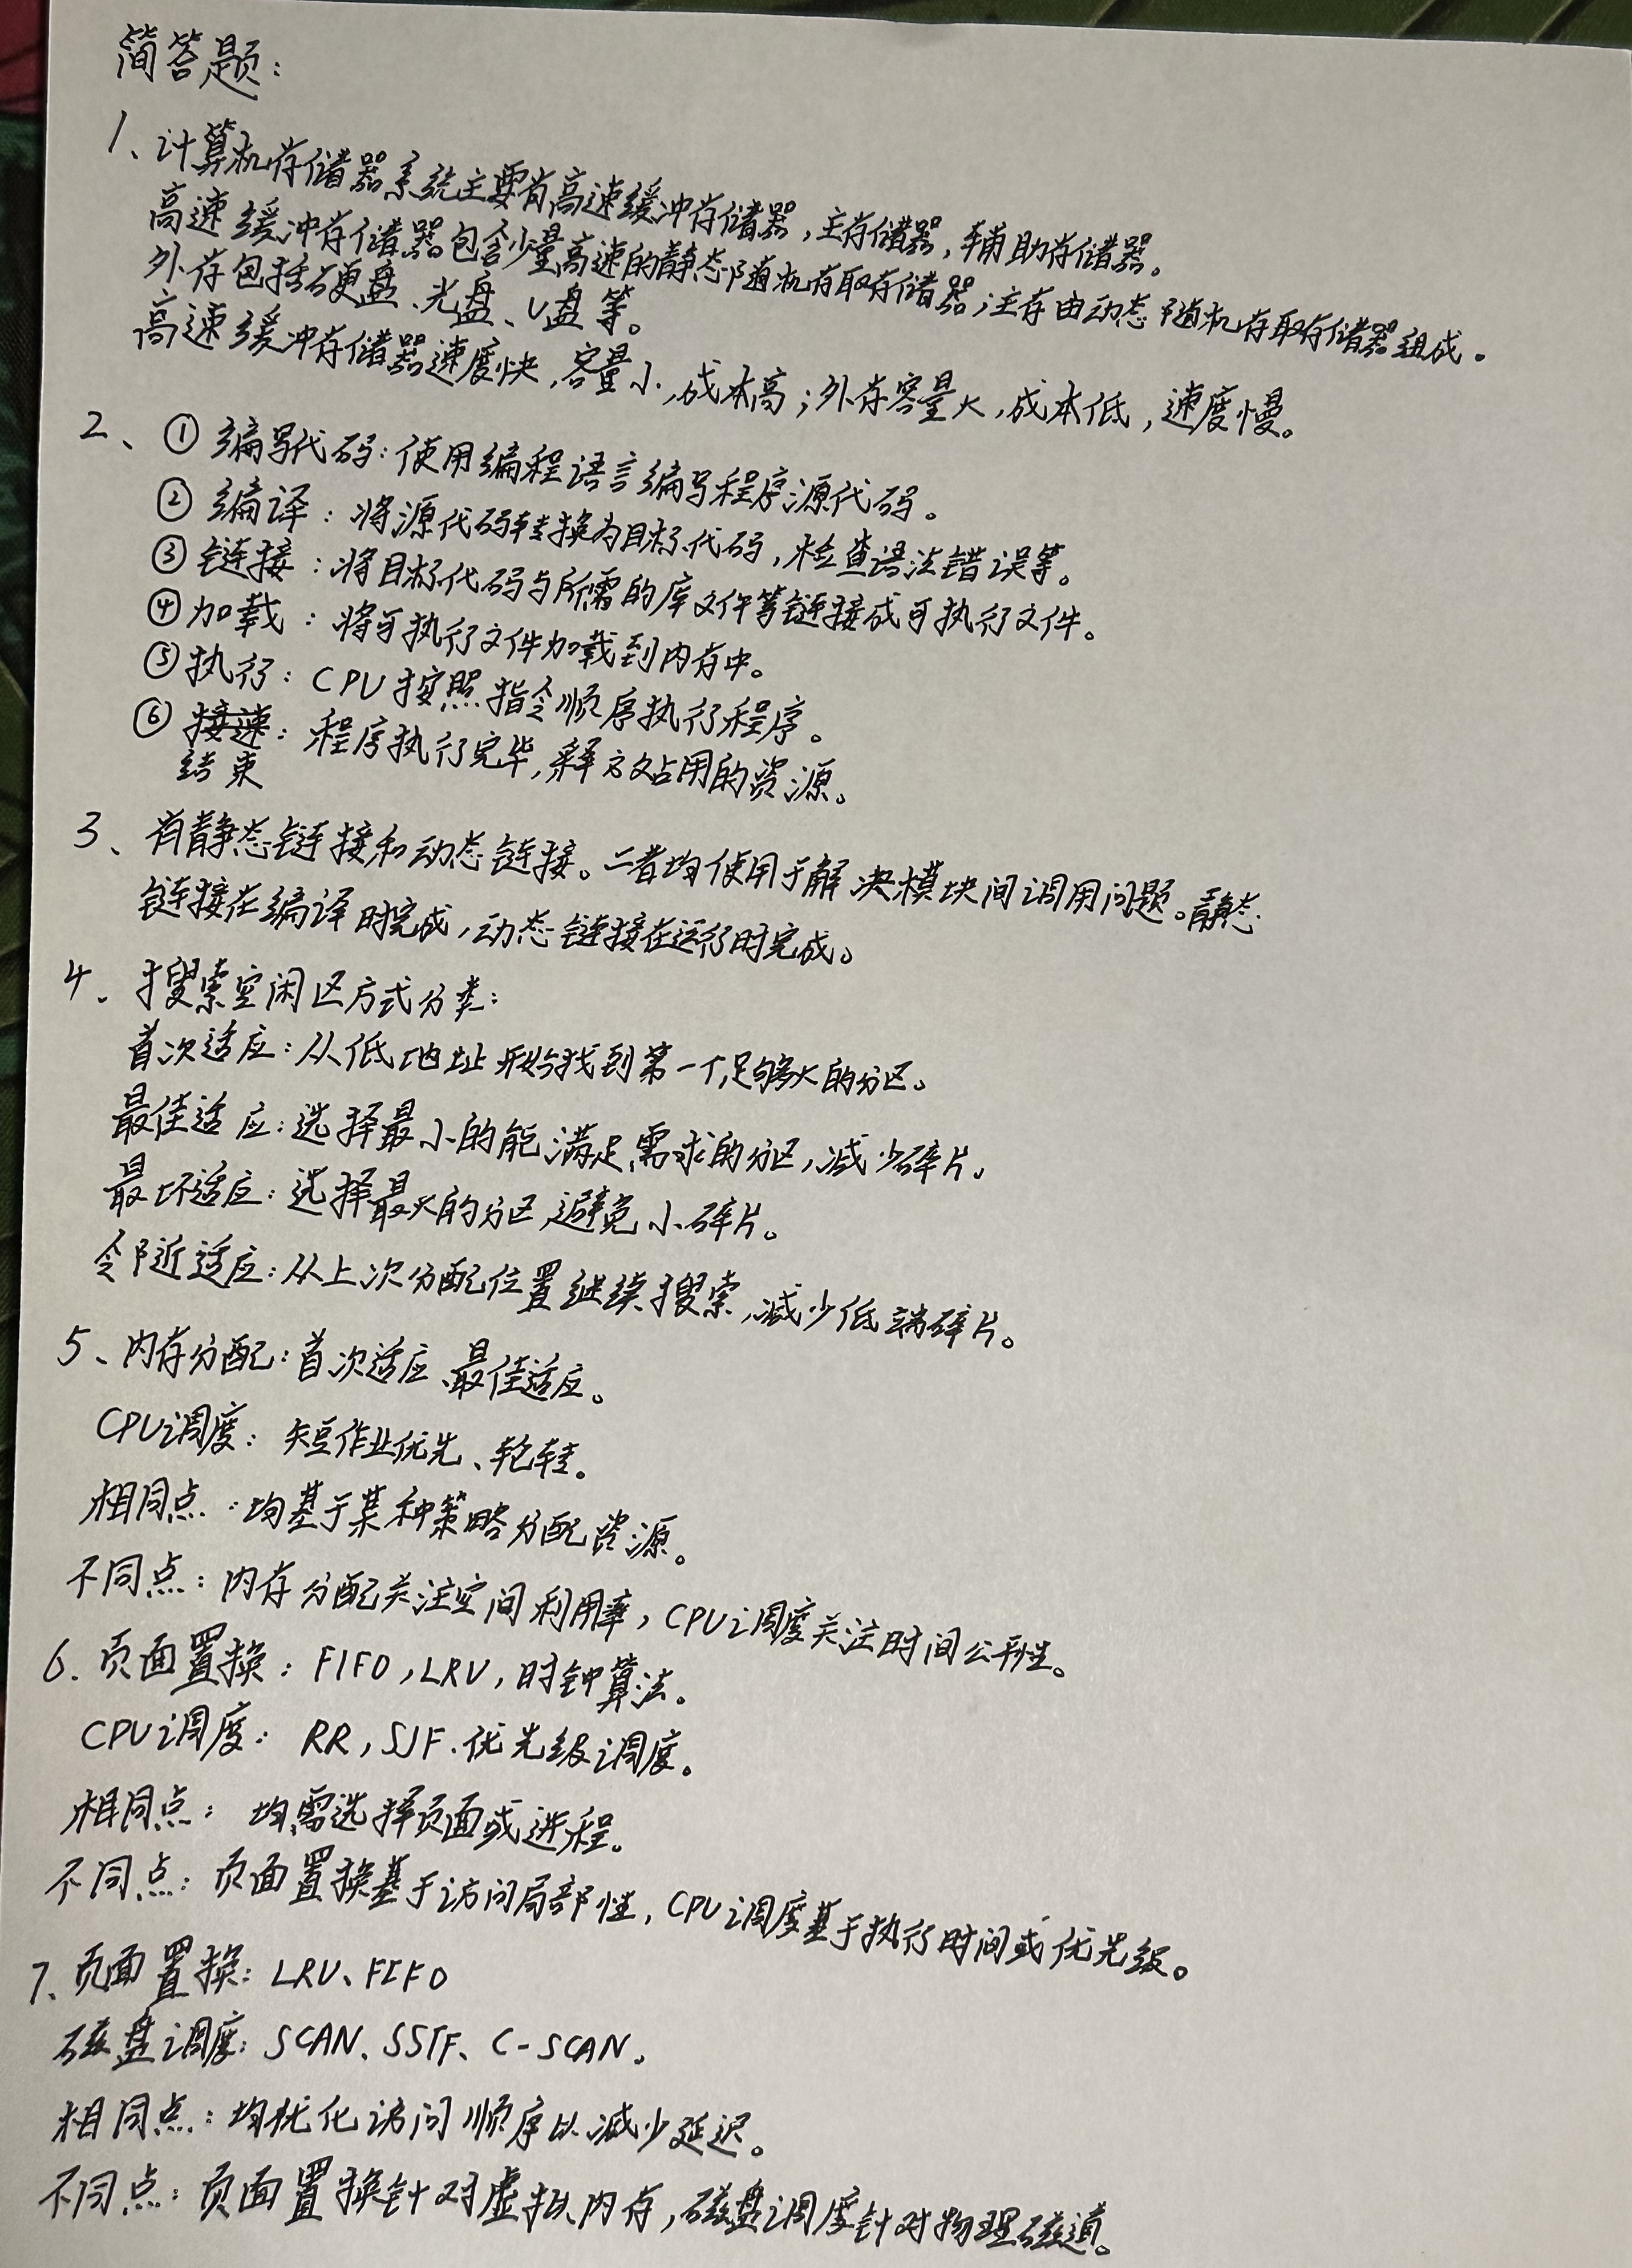 简答题：
1、计算机存储器系统主要有高速缓冲存储器，主存储器，辅助存储器。
高速缓冲存储器包含少量高速的静态随机存取存储器；主存由动态随机存取存储器组成。
外存包括硬盘、光盘、U盘等。
高速缓冲存储器速度快，容量小，成本高；外存容量大，成本低，速度慢。
2、① 编写代码：使用编程语言编写程序源代码。
② 编译：将源代码转换为目标代码，检查语法错误等。
③ 链接：将目标代码与所需的库文件等链接成可执行文件。
④ 加载：将可执行文件加载到内存中。
⑤ 执行：CPU按照指令顺序执行程序。
⑥ 接速：程序执行完毕，释放占用的资源。
结束
3、有静态链接和动态链接。二者均使用于解决模块间调用问题。静态
链接在编译时完成，动态链接在运行时完成。
4、搜索空闲区方式分类：
首次适应：从低地址开始找到第一个足够大的分区。
最佳适应：选择最小的能满足需求的分区，减少碎片。
最坏适应：选择最大的分区，避免小碎片。
邻近适应：从上次分配位置继续搜索，减少低端碎片。
5、内存分配：首次适应、最佳适应。
CPU调度：短作业优先、轮转。
相同点：均基于某种策略分配资源。
不同点：内存分配关注空间利用率，CPU调度关注时间公平性。
6. 页面置换：FIFO，LRU，时钟算法。
CPU调度：RR，SJF.优先级调度。
相同点：均需选择页面或进程。
不同点：页面置换基于访问局部性，CPU调度基于执行时间或优先级。
7、页面置换：LRU、FIFO
磁盘调度：SCAN、SSTF、C-SCAN。
相同点：均优化访问顺序以减少延迟。
不同点：页面置换针对虚拟内存，磁盘调度针对物理磁道。